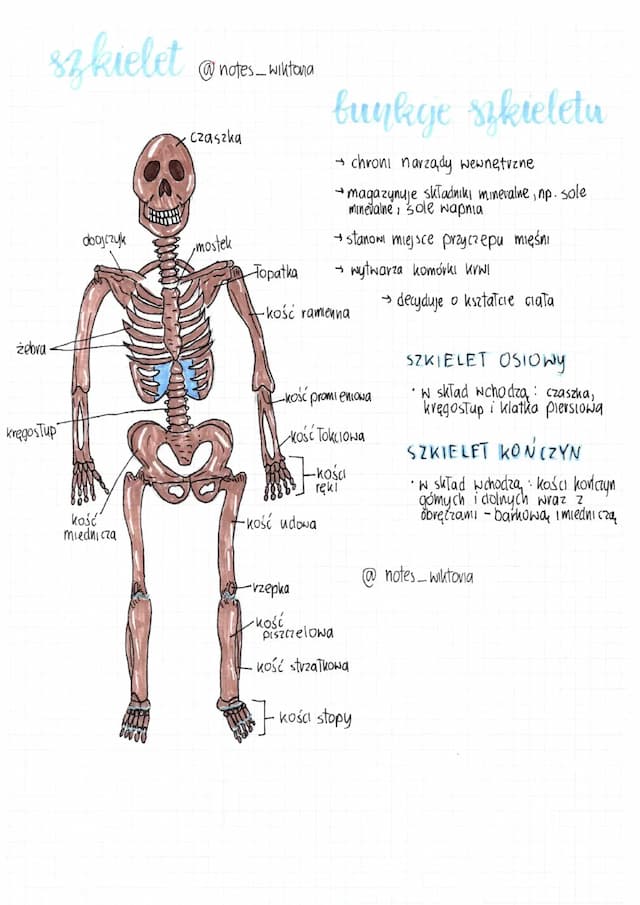 szkielet @notes_wiktoria
funkcje szkieletu
→ chroni narządy wewnętrzne
→ magazynuje składniki mineralne, np. sole
mineralne i sole wapnia
→ stanowi miejsce przyczepu mięśni
→ wytwarza komórki krwi
→ decyduje o kształcie ciała
SZKIELET OSIOWY
• w skład wchodzą: czaszka,
kręgosłup i klatka piersiowa
SZKIELET KOŃCZYN
• w skład wchodzą: kości kończyn
górnych i dolnych wraz z
obręczami - barkową i miedniczą
@ notes_wiktoria
czaszka
obojczyk
mostek
łopatka
kość ramienna
żebra
kość promieniowa
kręgosłup
kość łokciowa
kości
ręki
kość
miednicza
kość udowa
rzepka
kość
piszczelowa
kość strzałkowa
kości stopy